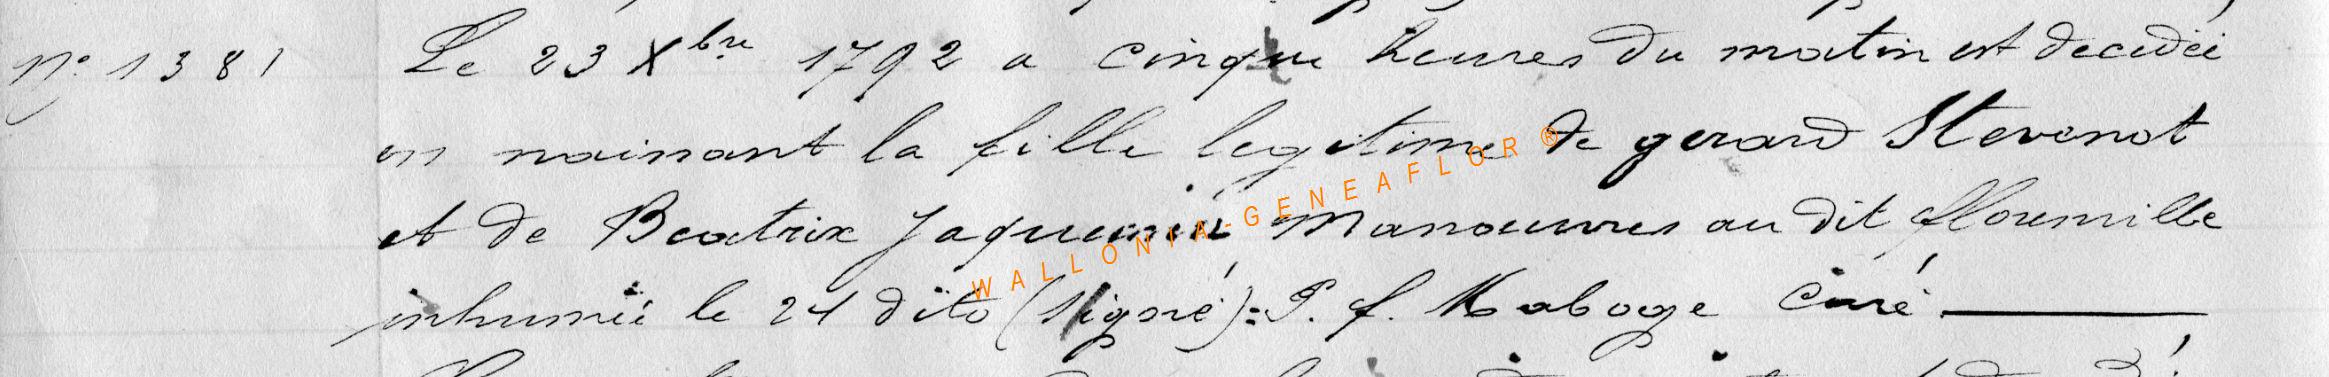 N° 1381 Le 23 Xbre 1792 a cinque heures du matin est decedéé
en naissant la fille legitime de gerard Stevenot
et de Beatrix Jaquemin Manoeuvres au dit flounville
inhuméé le 24 dito (signé) : P. f. Maboge Curé
WALLONIA-GENEAFLOR ®